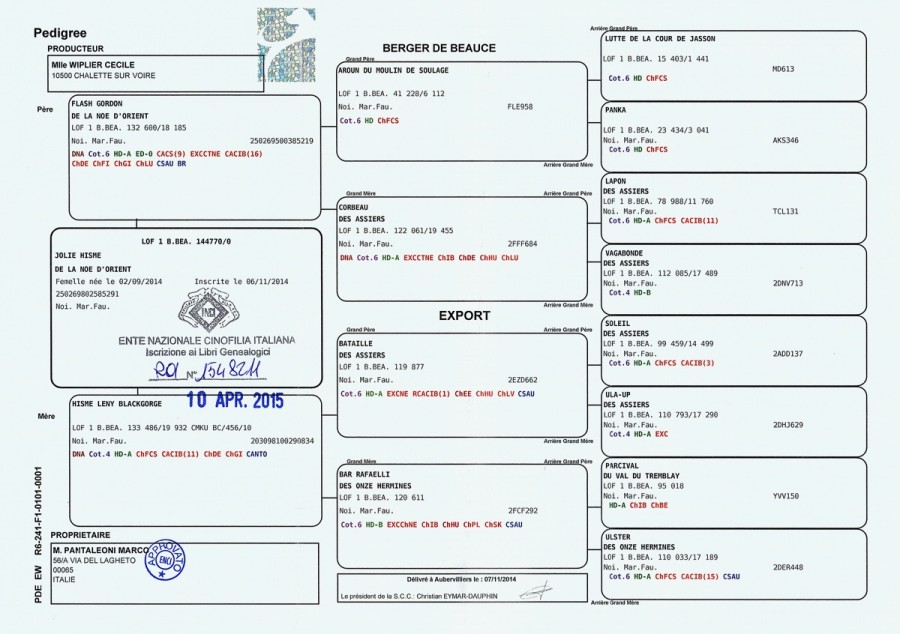 Pedigree
PRODUCTEUR
Mlle WIPLIER CECILE
10500 CHALETTE SUR VOIRE
Père
FLASH GORDON
DE LA NOE D'ORIENT
LOF 1 B.BEA. 132 600/18 185
Noi. Mar.Fau. 250269500385219
DNA Cot.6 HD-A ED-0 CACS(9) EXCCTNE CACIB(16)
ChDE ChFI ChGI ChLU CSAU BR
LOF 1 B.BEA. 144770/0
JOLIE HISME
DE LA NOE D'ORIENT
Femelle née le 02/09/2014 Inscrite le 06/11/2014
250269802585291
Noi. Mar.Fau.
ENCI
ENTE NAZIONALE CINOFILIA ITALIANA
Iscrizione ai Libri Genealogici
N°
10 APR. 2015
Mère
HISME LENY BLACKGORGE
LOF 1 B.BEA. 133 486/19 932 CMKU BC/456/10
Noi. Mar.Fau. 203098100290834
DNA Cot.4 HD-A ChFCS CACIB(11) ChDE ChGI CANTO
PROPRIETAIRE
M. PANTALEONI MARCO
56/A VIA DEL LAGHETO
00065
ITALIE
APPROVATO
ENCI
PDE EW R6-241-F1-0101-0001
BERGER DE BEAUCE
Grand Père
AROUN DU MOULIN DE SOULAGE
LOF 1 B.BEA. 41 228/6 112
Noi. Mar.Fau. FLE958
Cot.6 HD ChFCS
Arrière Grand Mère
Grand Mère Arrière Grand Père
CORBEAU
DES ASSIERS
LOF 1 B.BEA. 122 061/19 455
Noi. Mar.Fau. 2FFF684
DNA Cot.6 HD-A EXCCTNE ChIB ChDE ChHU ChLU
Arrière Grand Mère
EXPORT
Grand Père Arrière Grand Père
BATAILLE
DES ASSIERS
LOF 1 B.BEA. 119 877
Noi. Mar.Fau. 2EZD662
Cot.6 HD-A EXCNE RCACIB(1) ChEE ChHU ChLV CSAU
Arrière Grand Mère
Grand Mère Arrière Grand Père
BAR RAFAELLI
DES ONZE HERMINES
LOF 1 B.BEA. 120 611
Noi. Mar.Fau. 2FCF292
Cot.6 HD-B EXCChNE ChIB ChHU ChPL ChSK CSAU
Délivré à Aubervilliers le : 07/11/2014
Le président de la S.C.C.: Christian EYMAR-DAUPHIN
Arrière Grand Mère
Arrière Grand Père
LUTTE DE LA COUR DE JASSON
LOF 1 B.BEA. 15 403/1 441
MD613
Cot.6 HD ChFCS
PANKA
LOF 1 B.BEA. 23 434/3 041
Noi. Mar.Fau. AKS346
Cot.6 HD ChFCS
LAPON
DES ASSIERS
LOF 1 B.BEA. 78 988/11 760
Noi. Mar.Fau. TCL131
Cot.6 HD-A ChFCS CACIB(11)
VAGABONDE
DES ASSIERS
LOF 1 B.BEA. 112 085/17 489
Noi. Mar.Fau. 2DNV713
Cot.4 HD-B
SOLEIL
DES ASSIERS
LOF 1 B.BEA. 99 459/14 499
Noi. Mar.Fau. 2ADD137
Cot.6 HD-A ChFCS CACIB(3)
ULA-UP
DES ASSIERS
LOF 1 B.BEA. 110 793/17 290
Noi. Mar.Fau. 2DHJ629
Cot.4 HD-A EXC
PARCIVAL
DU VAL DU TREMBLAY
LOF 1 B.BEA. 95 018
Noi. Mar.Fau. YVV150
HD-A ChIB ChBE
ULSTER
DES ONZE HERMINES
LOF 1 B.BEA. 110 033/17 189
Noi. Mar.Fau. 2DER448
Cot.6 HD-A ChFCS CACIB(15) CSAU